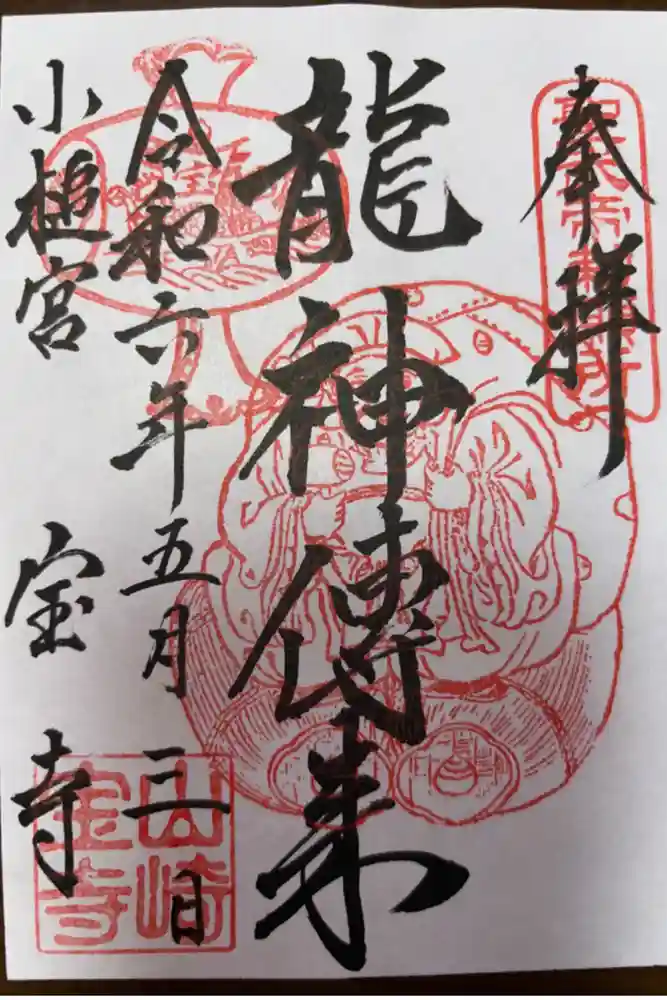 奉拝
龍神傳来
令和六年五月三日
小槌宮 宝寺
山崎
宝寺